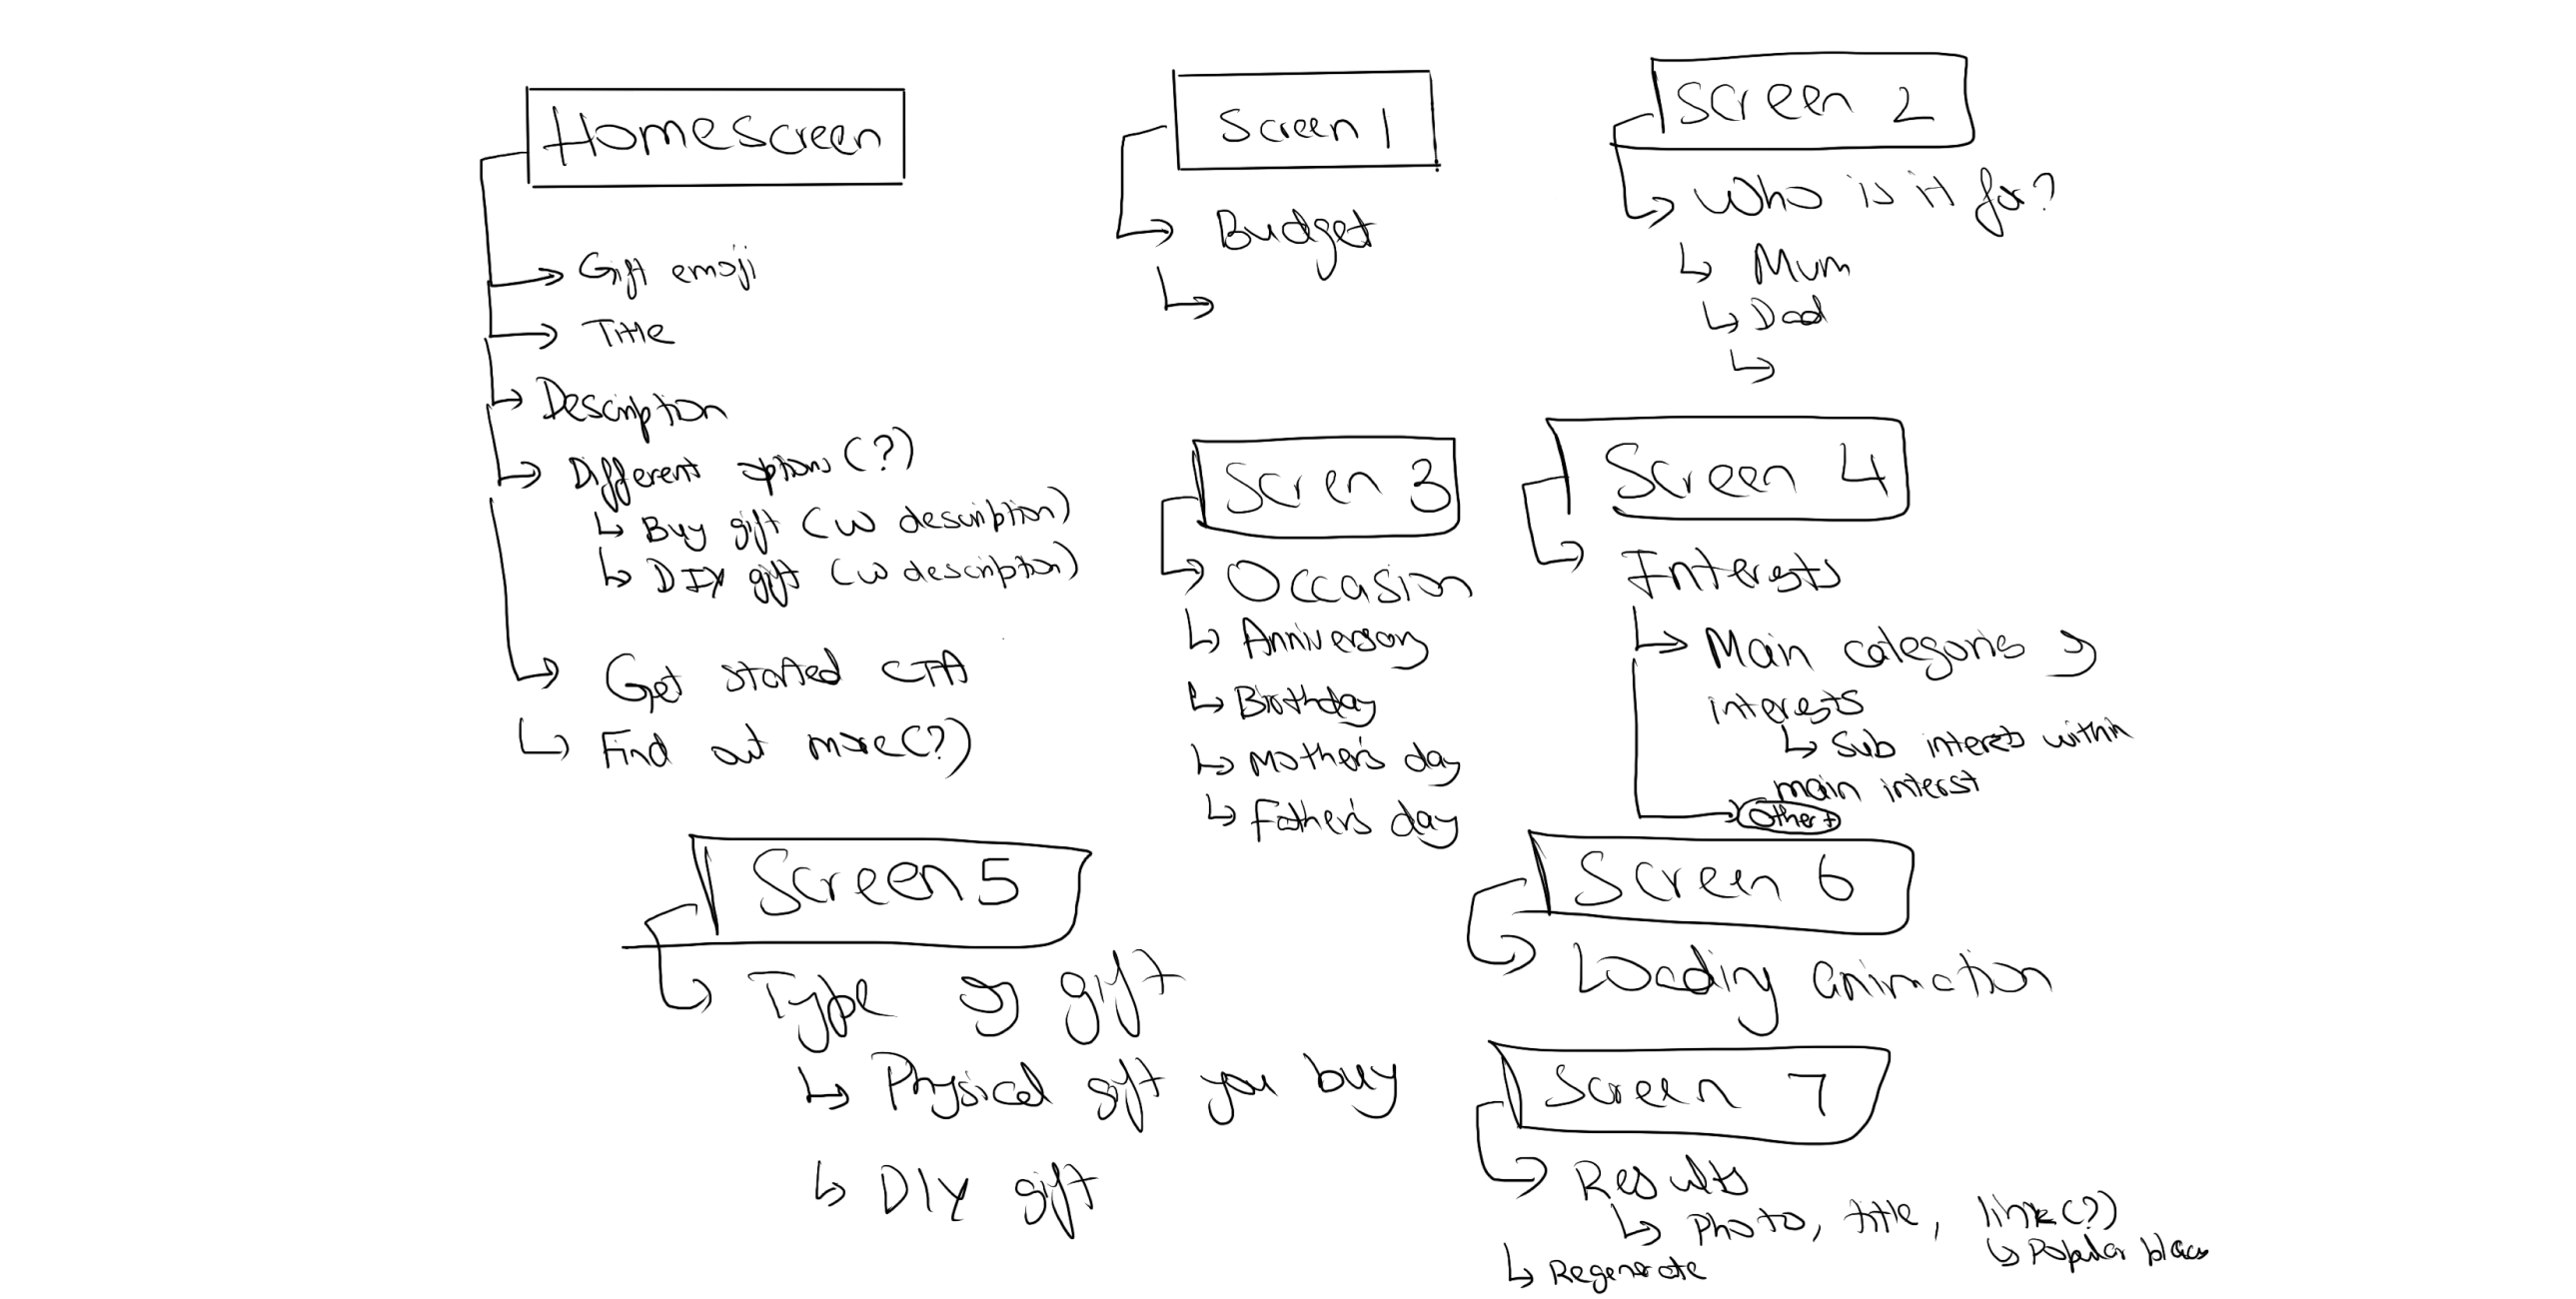 Homescreen
Gift emoji
Title
Description
Different options (?)
Buy gift (w description)
DIY gift (w description)
Get started CTA
Find out more(?)
Screen 1
Budget
Screen 2
Who is it for?
Mum
Dad
Scren 3
Occasion
Anniversary
Birthday
Mother's day
Father's day
Screen 4
Interests
Main categories of
interests
Sub interests within
main interst
Other
Screen 5
Type of gift
Physical gift you buy
DIY gift
Screen 6
Loading animation
Screen 7
Results
Photo, title, link(?)
Popular places
Regenerate